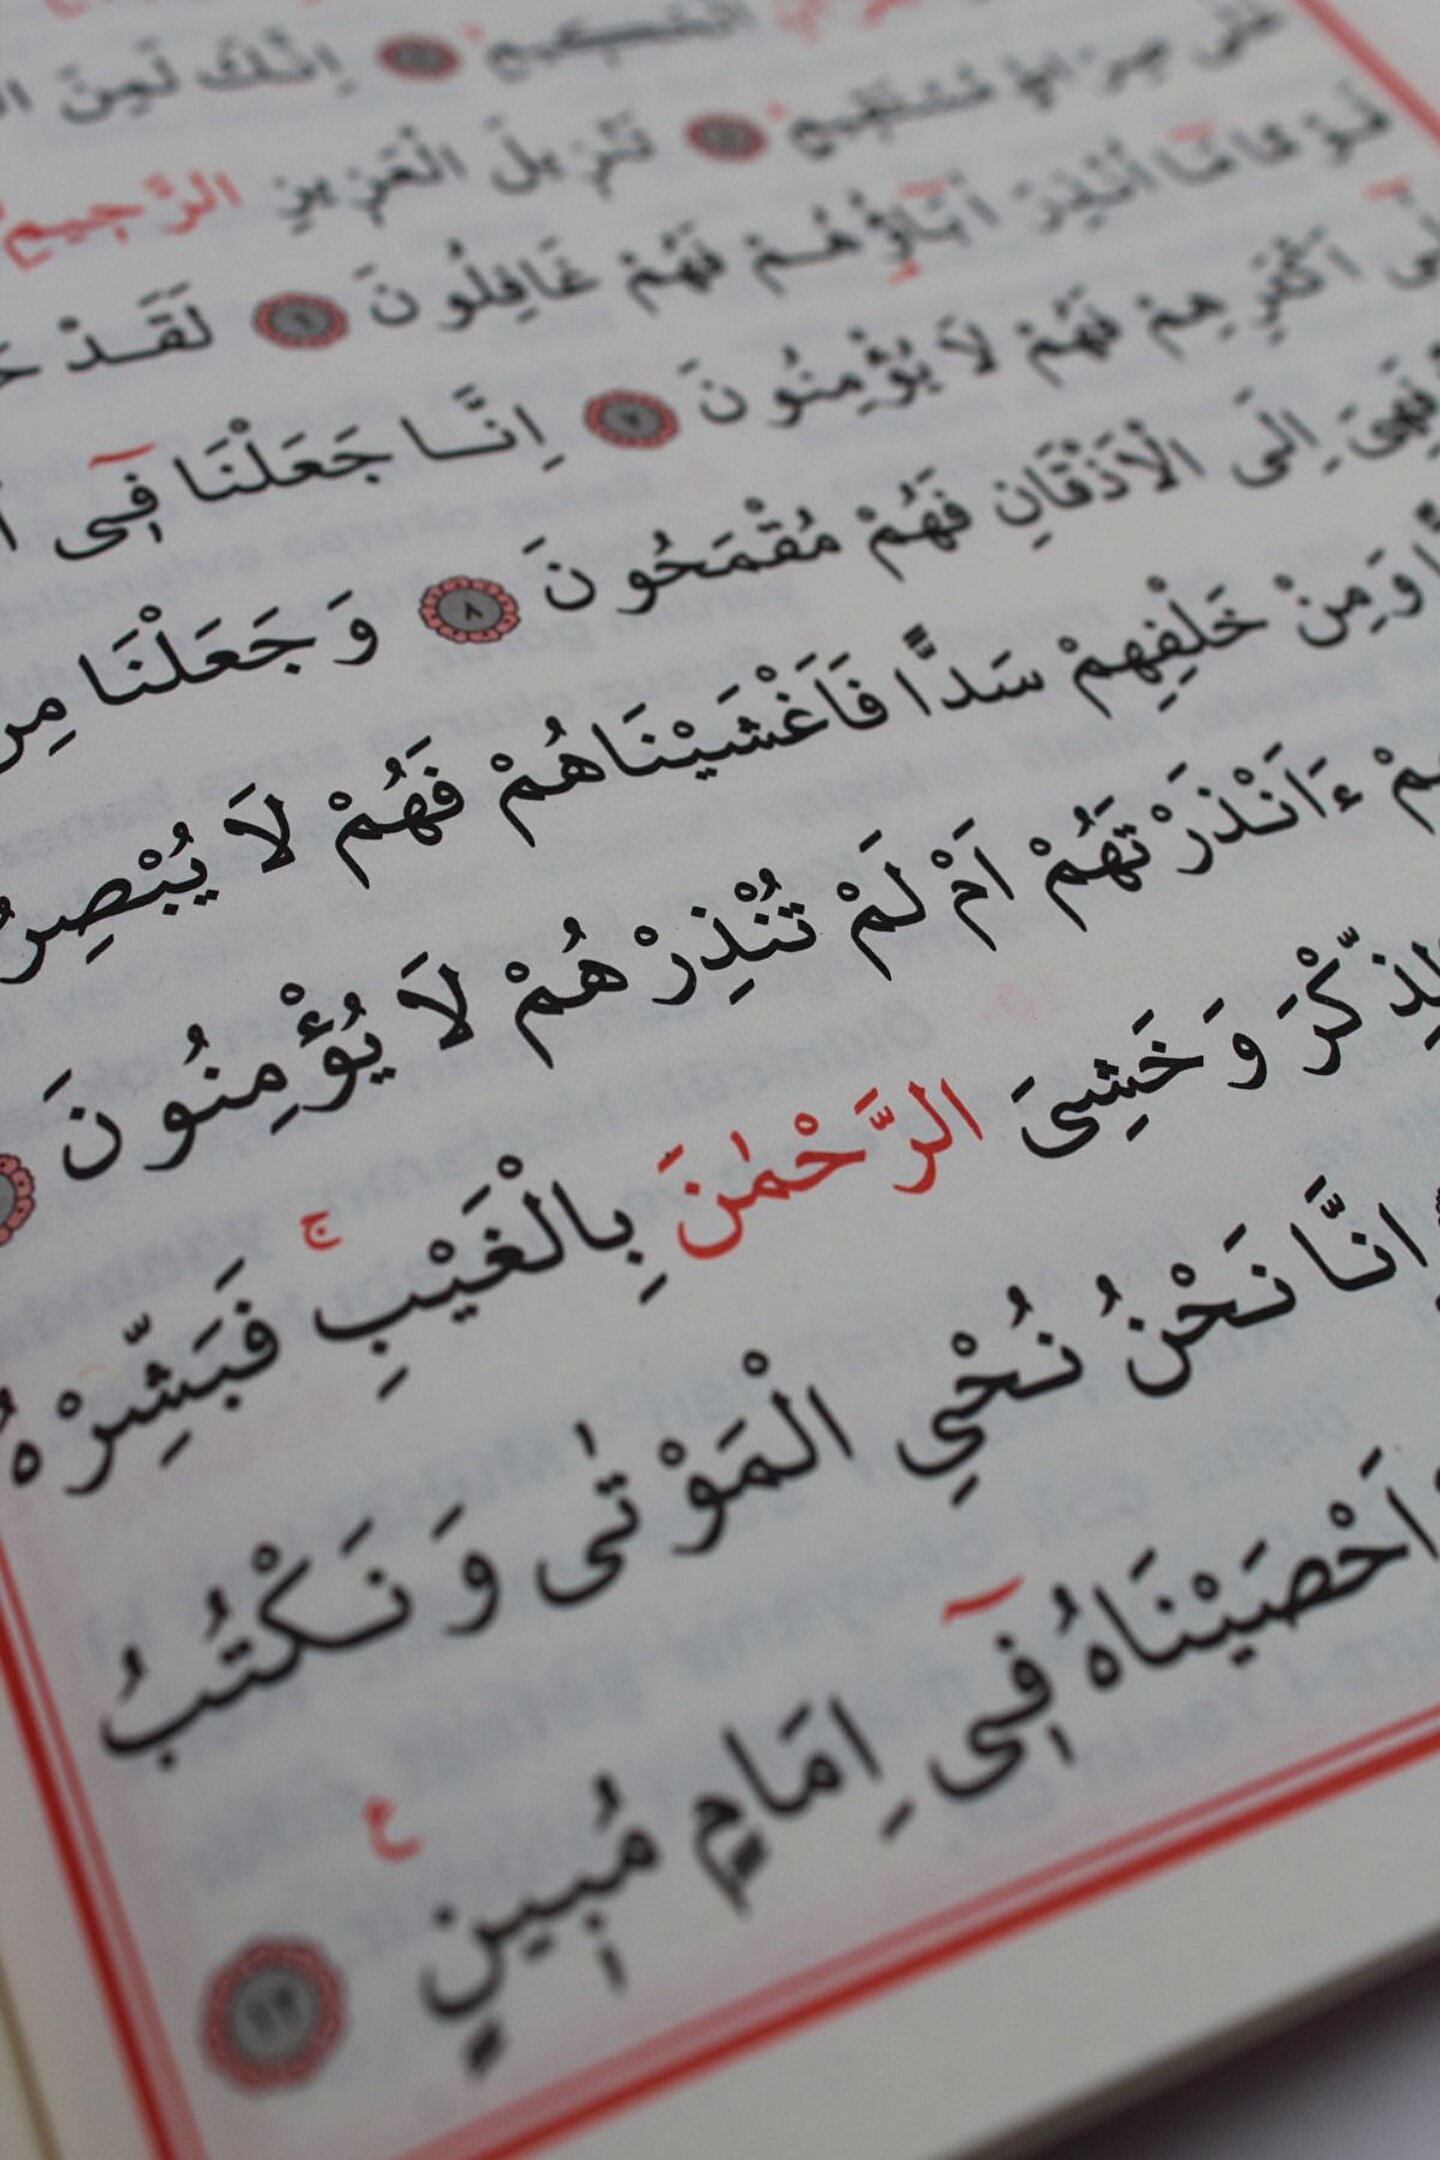 الْحَكِيمِ ﴿٢﴾ اِنَّكَ لَمِنَ
عَلٰى صِرَاطٍ مُسْتَقِيمٍ ﴿٤﴾ تَنْزِيلَ الْعَزِيزِ الرَّحِيمِ
قَوْمًا مَٓا اُنْذِرَ اٰبَٓاؤُ۬هُمْ فَهُمْ غَافِلُونَ ﴿٦﴾ لَقَدْ
اَكْثَرِهِمْ فَهُمْ لَا يُؤْمِنُونَ ﴿٧﴾ اِنَّا جَعَلْنَا فٖٓى
فَهِىَ اِلَى الْاَذْقَانِ فَهُمْ مُقْمَحُونَ ﴿٨﴾ وَجَعَلْنَا مِنْ
وَمِنْ خَلْفِهِمْ سَدًّا فَاَغْشَيْنَاهُمْ فَهُمْ لَا يُبْصِرُ
ءَاَنْذَرْتَهُمْ اَمْ لَمْ تُنْذِرْهُمْ لَا يُؤْمِنُونَ
الذِّكْرَ وَخَشِىَ الرَّحْمٰنَ بِالْغَيْبِۚ فَبَشِّرْهُ
اِنَّا نَحْنُ نُحْيِ الْمَوْتٰى وَنَكْتُبُ
اَحْصَيْنَاهُ فٖٓى اِمَامٍ مُبٖينٍ ع ﴿١٢﴾